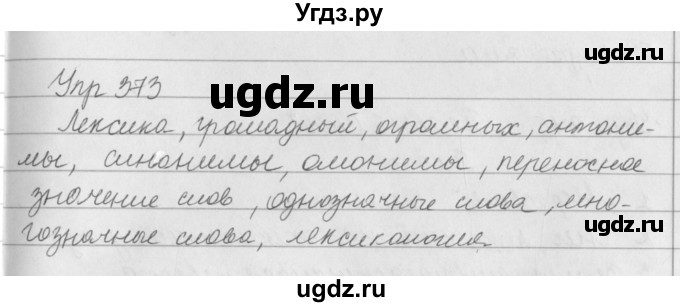 Угдз.ру
ugdz.ru
ugdz.ru
Упр 373
ugdz.ru
Лексика, громадный, огромных, антони-
мы, синонимы, омонимы, переносное
ugdz.ru
ugdz.ru
значение слов, однозначные слова, мно-
гозначные слова, лексикология.
ugdz.ru
ugdz.ru
Угдз.ру